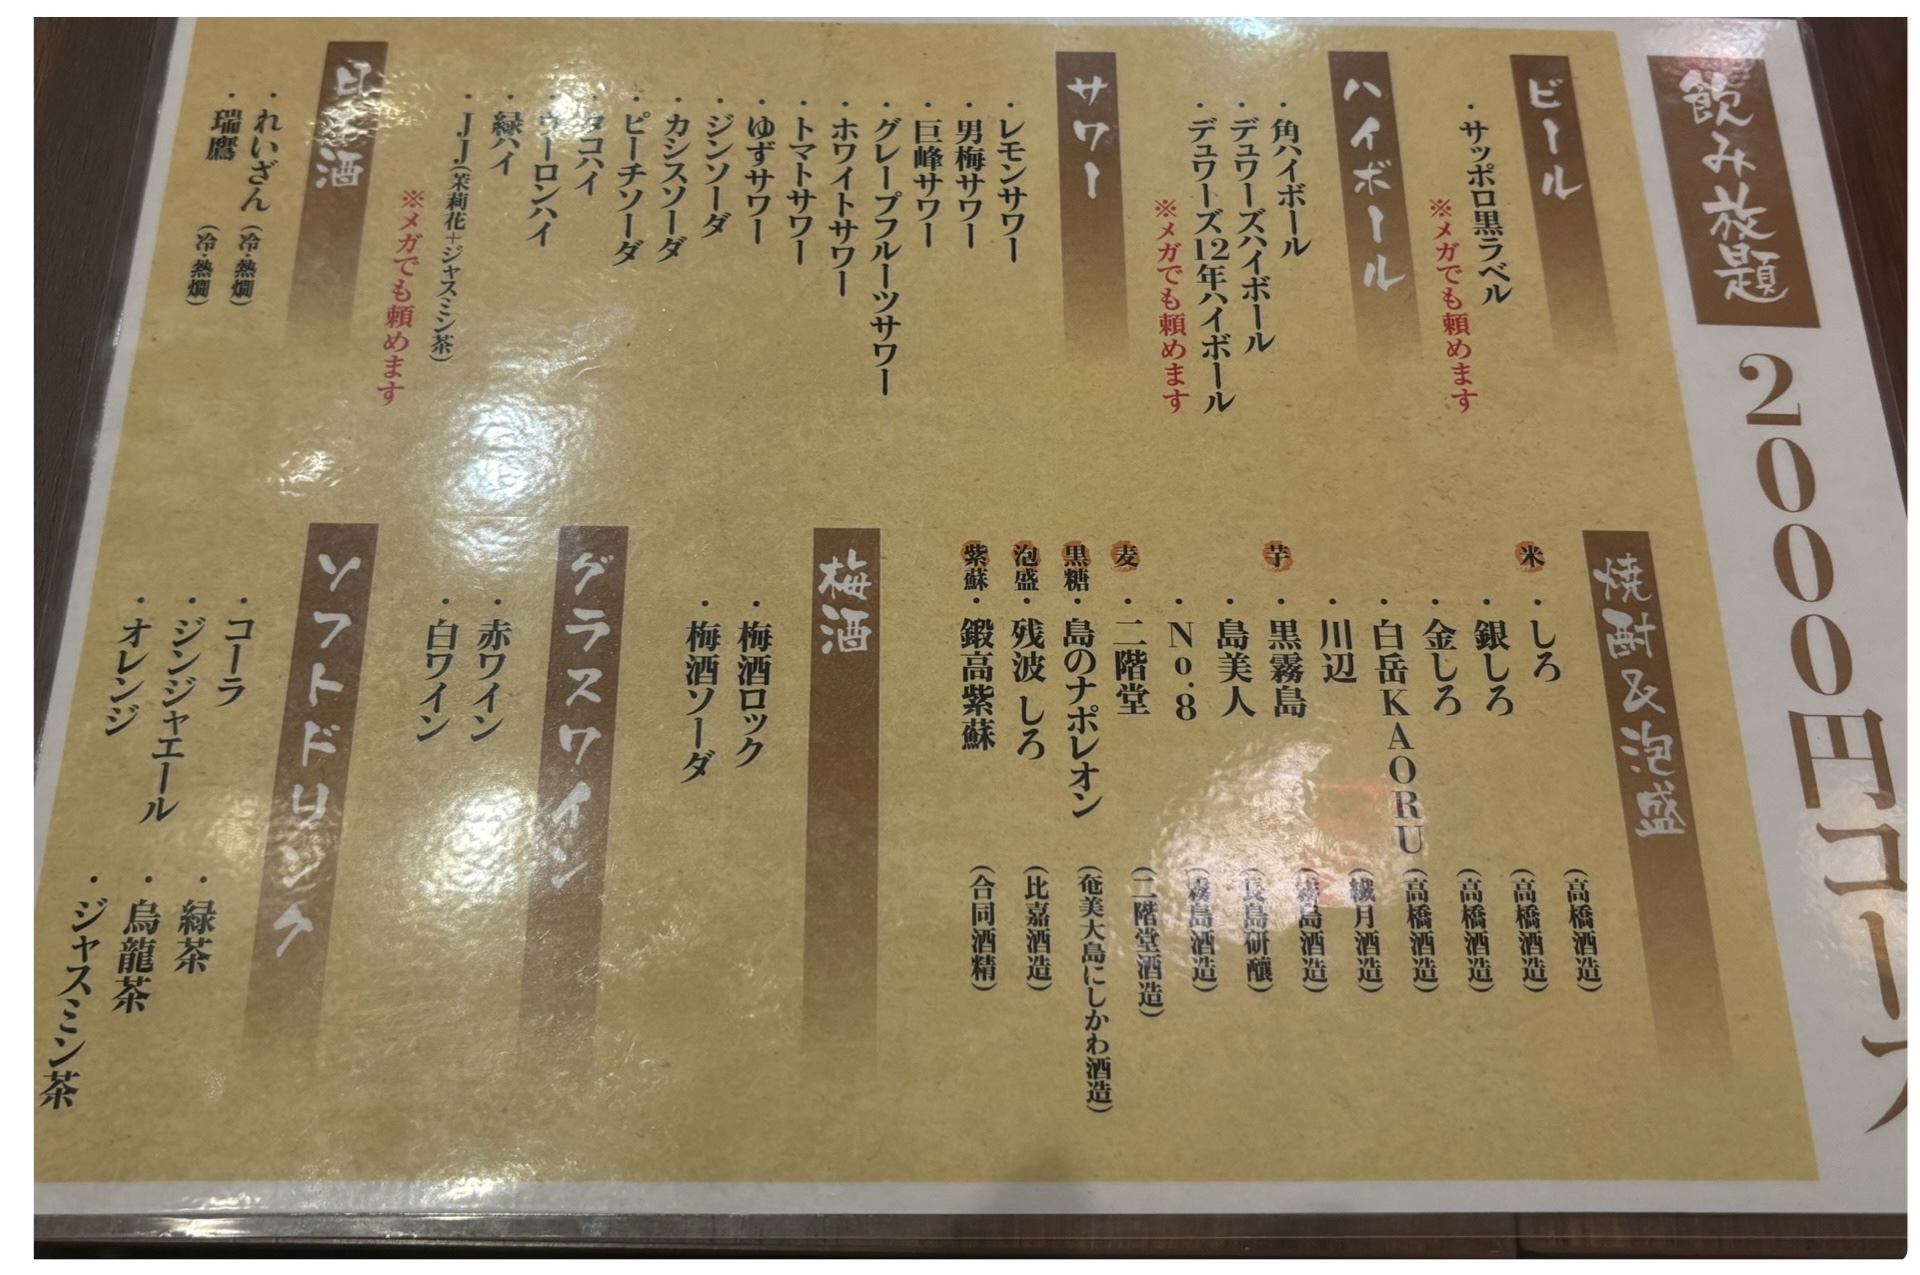 飲み放題 2000円コース
ビール
・サッポロ黒ラベル
※メガでも頼めます
ハイボール
・角ハイボール
・デュワーズハイボール
・デュワーズ12年ハイボール
※メガでも頼めます
サワー
・レモンサワー
・男梅サワー
・巨峰サワー
・グレープフルーツサワー
・ホワイトサワー
・トマトサワー
・ゆずサワー
・ジンソーダ
・カシスソーダ
・ピーチソーダ
・タコハイ
・ウーロンハイ
・緑ハイ
・JJ(茉莉花+ジャスミン茶)
※メガでも頼めます
日本酒
・れいざん (冷・熱燗)
・瑞鷹 (冷・熱燗)
焼酎&泡盛
米・しろ (高橋酒造)
・銀しろ (高橋酒造)
・金しろ (高橋酒造)
・白岳KAORU (高橋酒造)
・川辺 (繊月酒造)
芋・黒霧島 (霧島酒造)
・島美人 (長島研醸)
・No.8 (霧島酒造)
麦・二階堂 (二階堂酒造)
黒糖・島のナポレオン (奄美大島にしかわ酒造)
泡盛・残波 しろ (比嘉酒造)
紫蘇・鍛高紫蘇 (合同酒精)
梅酒
・梅酒ロック
・梅酒ソーダ
グラスワイン
・赤ワイン
・白ワイン
ソフトドリンク
・コーラ
・ジンジャエール
・オレンジ
・緑茶
・烏龍茶
・ジャスミン茶